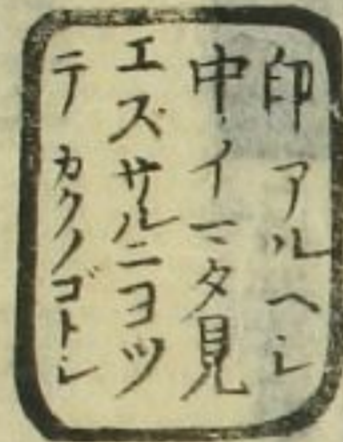 印アルヘシ
中イマタ見
エズサルニヨツ
テカクノゴトシ